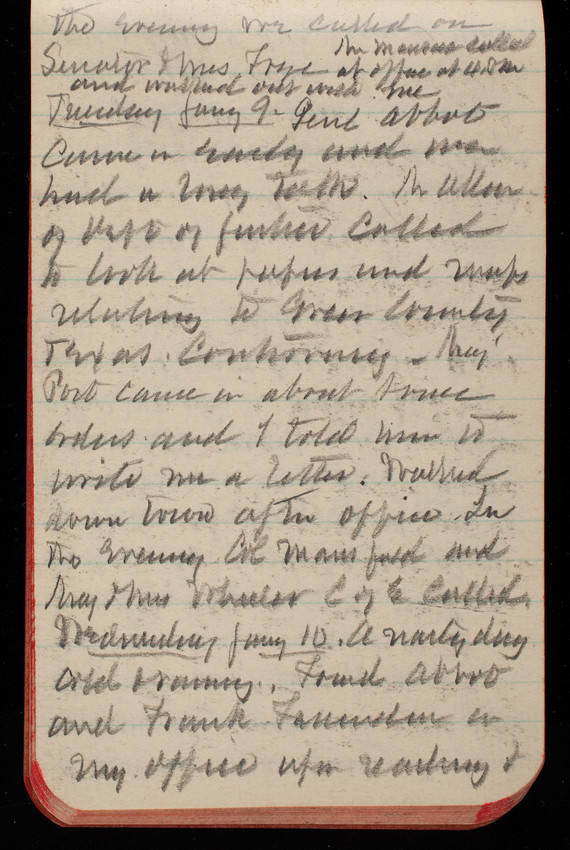 the evening we called on
Senator & Mrs Frye Mr Manson called
at office at 4 Pm
and walked out with me
Tuesday Jany 9. Genl Abbot
came in early and we
had a long talk. Mr Allen
of Dept of Justice called
to look at papers and maps
relating to Greer County
Texas Controversy - Maj
Post came in about some
orders and I told him to
write me a letter. Walked
down town after office. In
the evening Col Mansfield and
Maj & Mrs Wheeler C of E called.
Wednesday Jany 10. A nasty day
cold & rainy. Found Abbot
and Frank in
my office upon reaching &